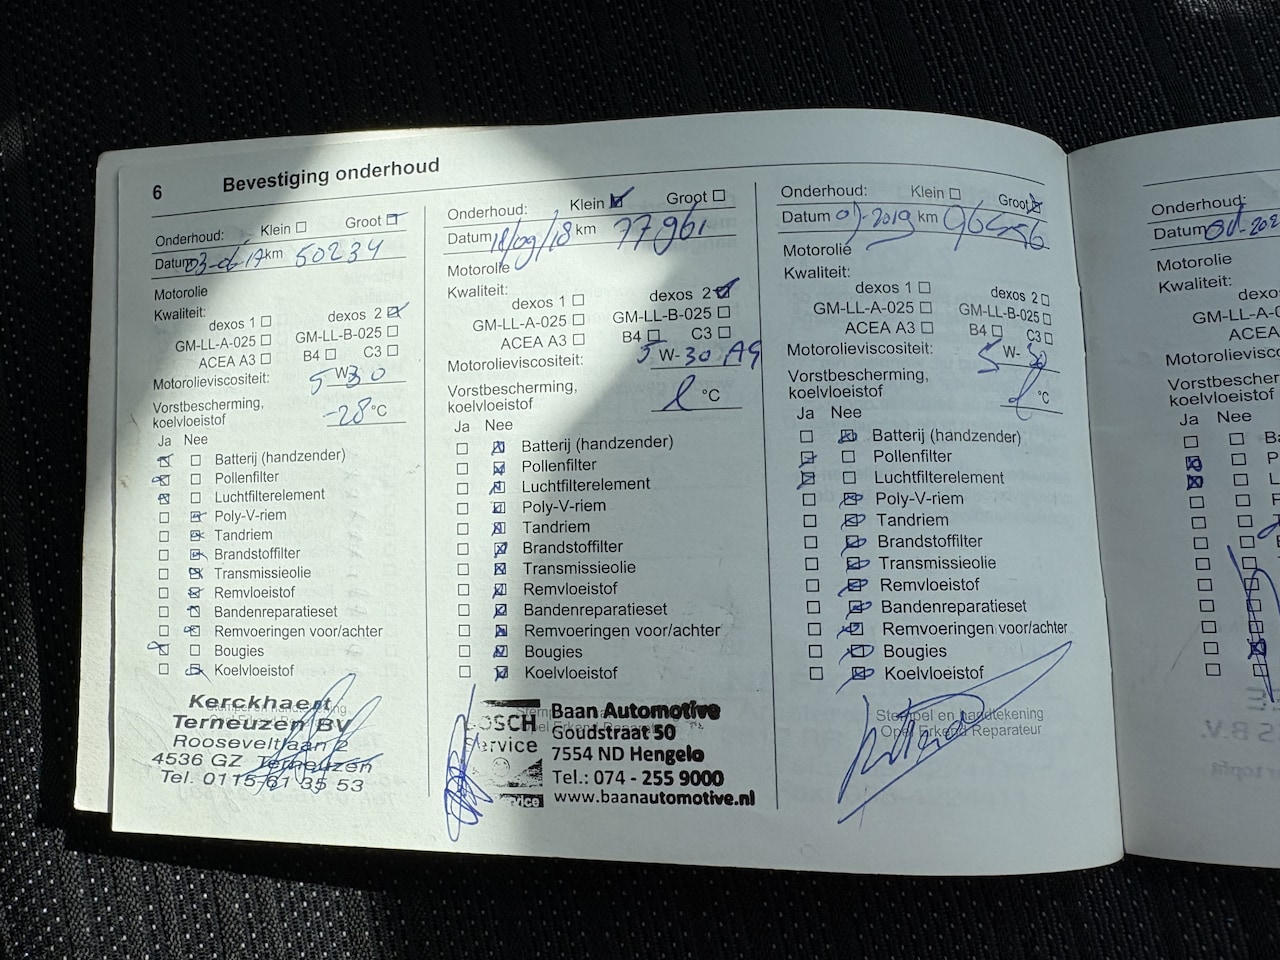 6 Bevestiging onderhoud
Onderhoud: Klein Groot
km 50234
Motorolie
Kwaliteit:
dexos 1 dexos 2
GM-LL-A-025 GM-LL-B-025
ACEA A3 B4 C3
Motorolieviscositeit: 5 W- 30
Vorstbescherming,
koelvloeistof -28 °C
Ja Nee
Batterij (handzender)
Pollenfilter
Luchtfilterelement
Poly-V-riem
Tandriem
Brandstoffilter
Transmissieolie
Remvloeistof
Bandenreparatieset
Remvoeringen voor/achter
Bougies
Koelvloeistof
Kerckhaert
Terneuzen BV
Rooseveltlaan 2
4536 GZ Terneuzen
Tel. 0115 61 35 53
Onderhoud: Klein Groot
Datum 18/09/18 km 77961
Motorolie
Kwaliteit:
dexos 1 dexos 2
GM-LL-A-025 GM-LL-B-025
ACEA A3 B4 C3
Motorolieviscositeit: 5 W- 30
Vorstbescherming,
koelvloeistof °C
Ja Nee
Batterij (handzender)
Pollenfilter
Luchtfilterelement
Poly-V-riem
Tandriem
Brandstoffilter
Transmissieolie
Remvloeistof
Bandenreparatieset
Remvoeringen voor/achter
Bougies
Koelvloeistof
BOSCH
Service
Baan Automotive
Goudstraat 50
7554 ND Hengelo
Tel.: 074 - 255 9000
www.baanautomotive.nl
Onderhoud: Klein Groot
Datum km
Motorolie
Kwaliteit:
dexos 1 dexos 2
GM-LL-A-025 GM-LL-B-025
ACEA A3 B4 C3
Motorolieviscositeit: 5 W- 30
Vorstbescherming,
koelvloeistof °C
Ja Nee
Batterij (handzender)
Pollenfilter
Luchtfilterelement
Poly-V-riem
Tandriem
Brandstoffilter
Transmissieolie
Remvloeistof
Bandenreparatieset
Remvoeringen voor/achter
Bougies
Koelvloeistof
Stempel en handtekening
Opel Erkend Reparateur
Onderhoud:
Datum
Motorolie
Kwaliteit:
GM-LL-A
ACEA
Vorstbescher
koelvloeistof
Ja Nee